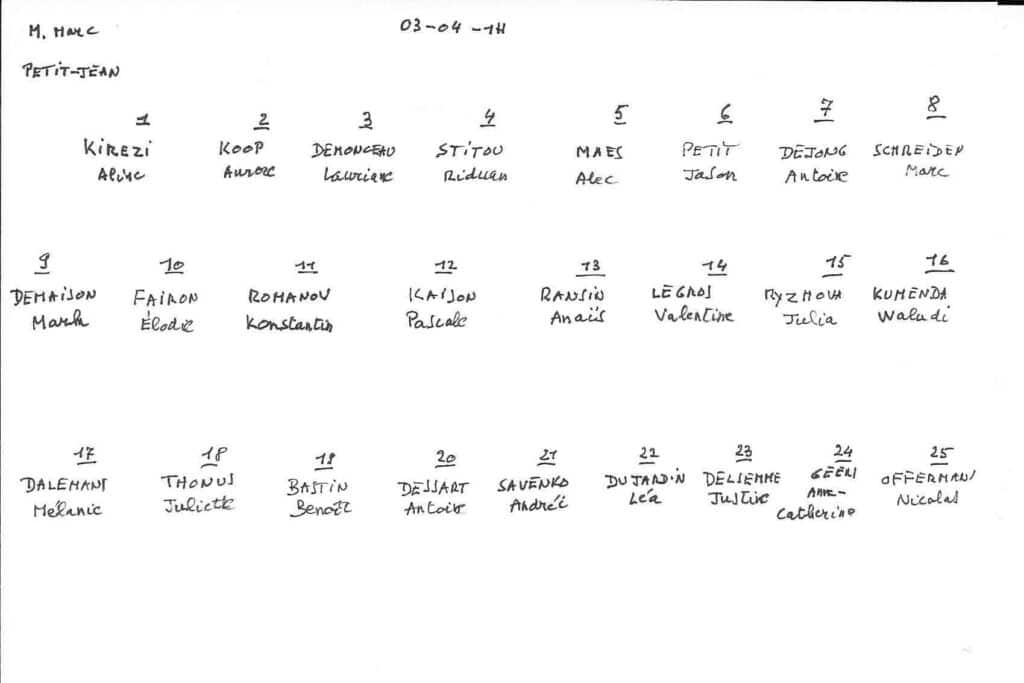 M. Marc 03-04-14
PETIT-JEAN
1 2 3 4 5 6 7 8
KIREZI KOOP DEMONCEAU STITOU MAES PETIT DEJONG SCHREIDER
Aline Aurore Lauriane Riduan Alec Jason Antoine Marc
9 10 11 12 13 14 15 16
DEMAISON FAIRON ROMANOV KAISON RANSIN LEGROS RYZHOVA KUMENDA
Mark Élodie Konstantin Pascale Anaïs Valentine Julia Waludi
17 18 19 20 21 22 23 24 25
DALEMANS THONUS BASTIN DESSART SAVENKO DUJARDIN DELSEMME GEERI OFFERMANS
Mélanie Juliette Benoît Antoine Andréi Léa Justine Anne- Nicolas
Catherine